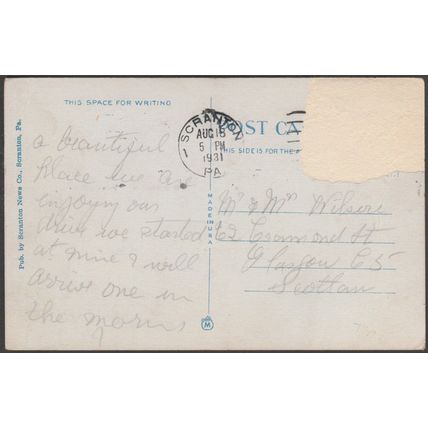 THIS SPACE FOR WRITING
POST CA
THIS SIDE IS FOR THE A
SCRANTON
1
AUG 15
5 PM
1931
PA
a beautiful
place we are
enjoying our
drive we started
at nine & will
arrive one in
the morns
Mr & Mrs Wilson
62 Cramond St
Glasgow C5
Scotlan
MADE IN U.S.A.
M
Pub. by Scranton News Co., Scranton, Pa.